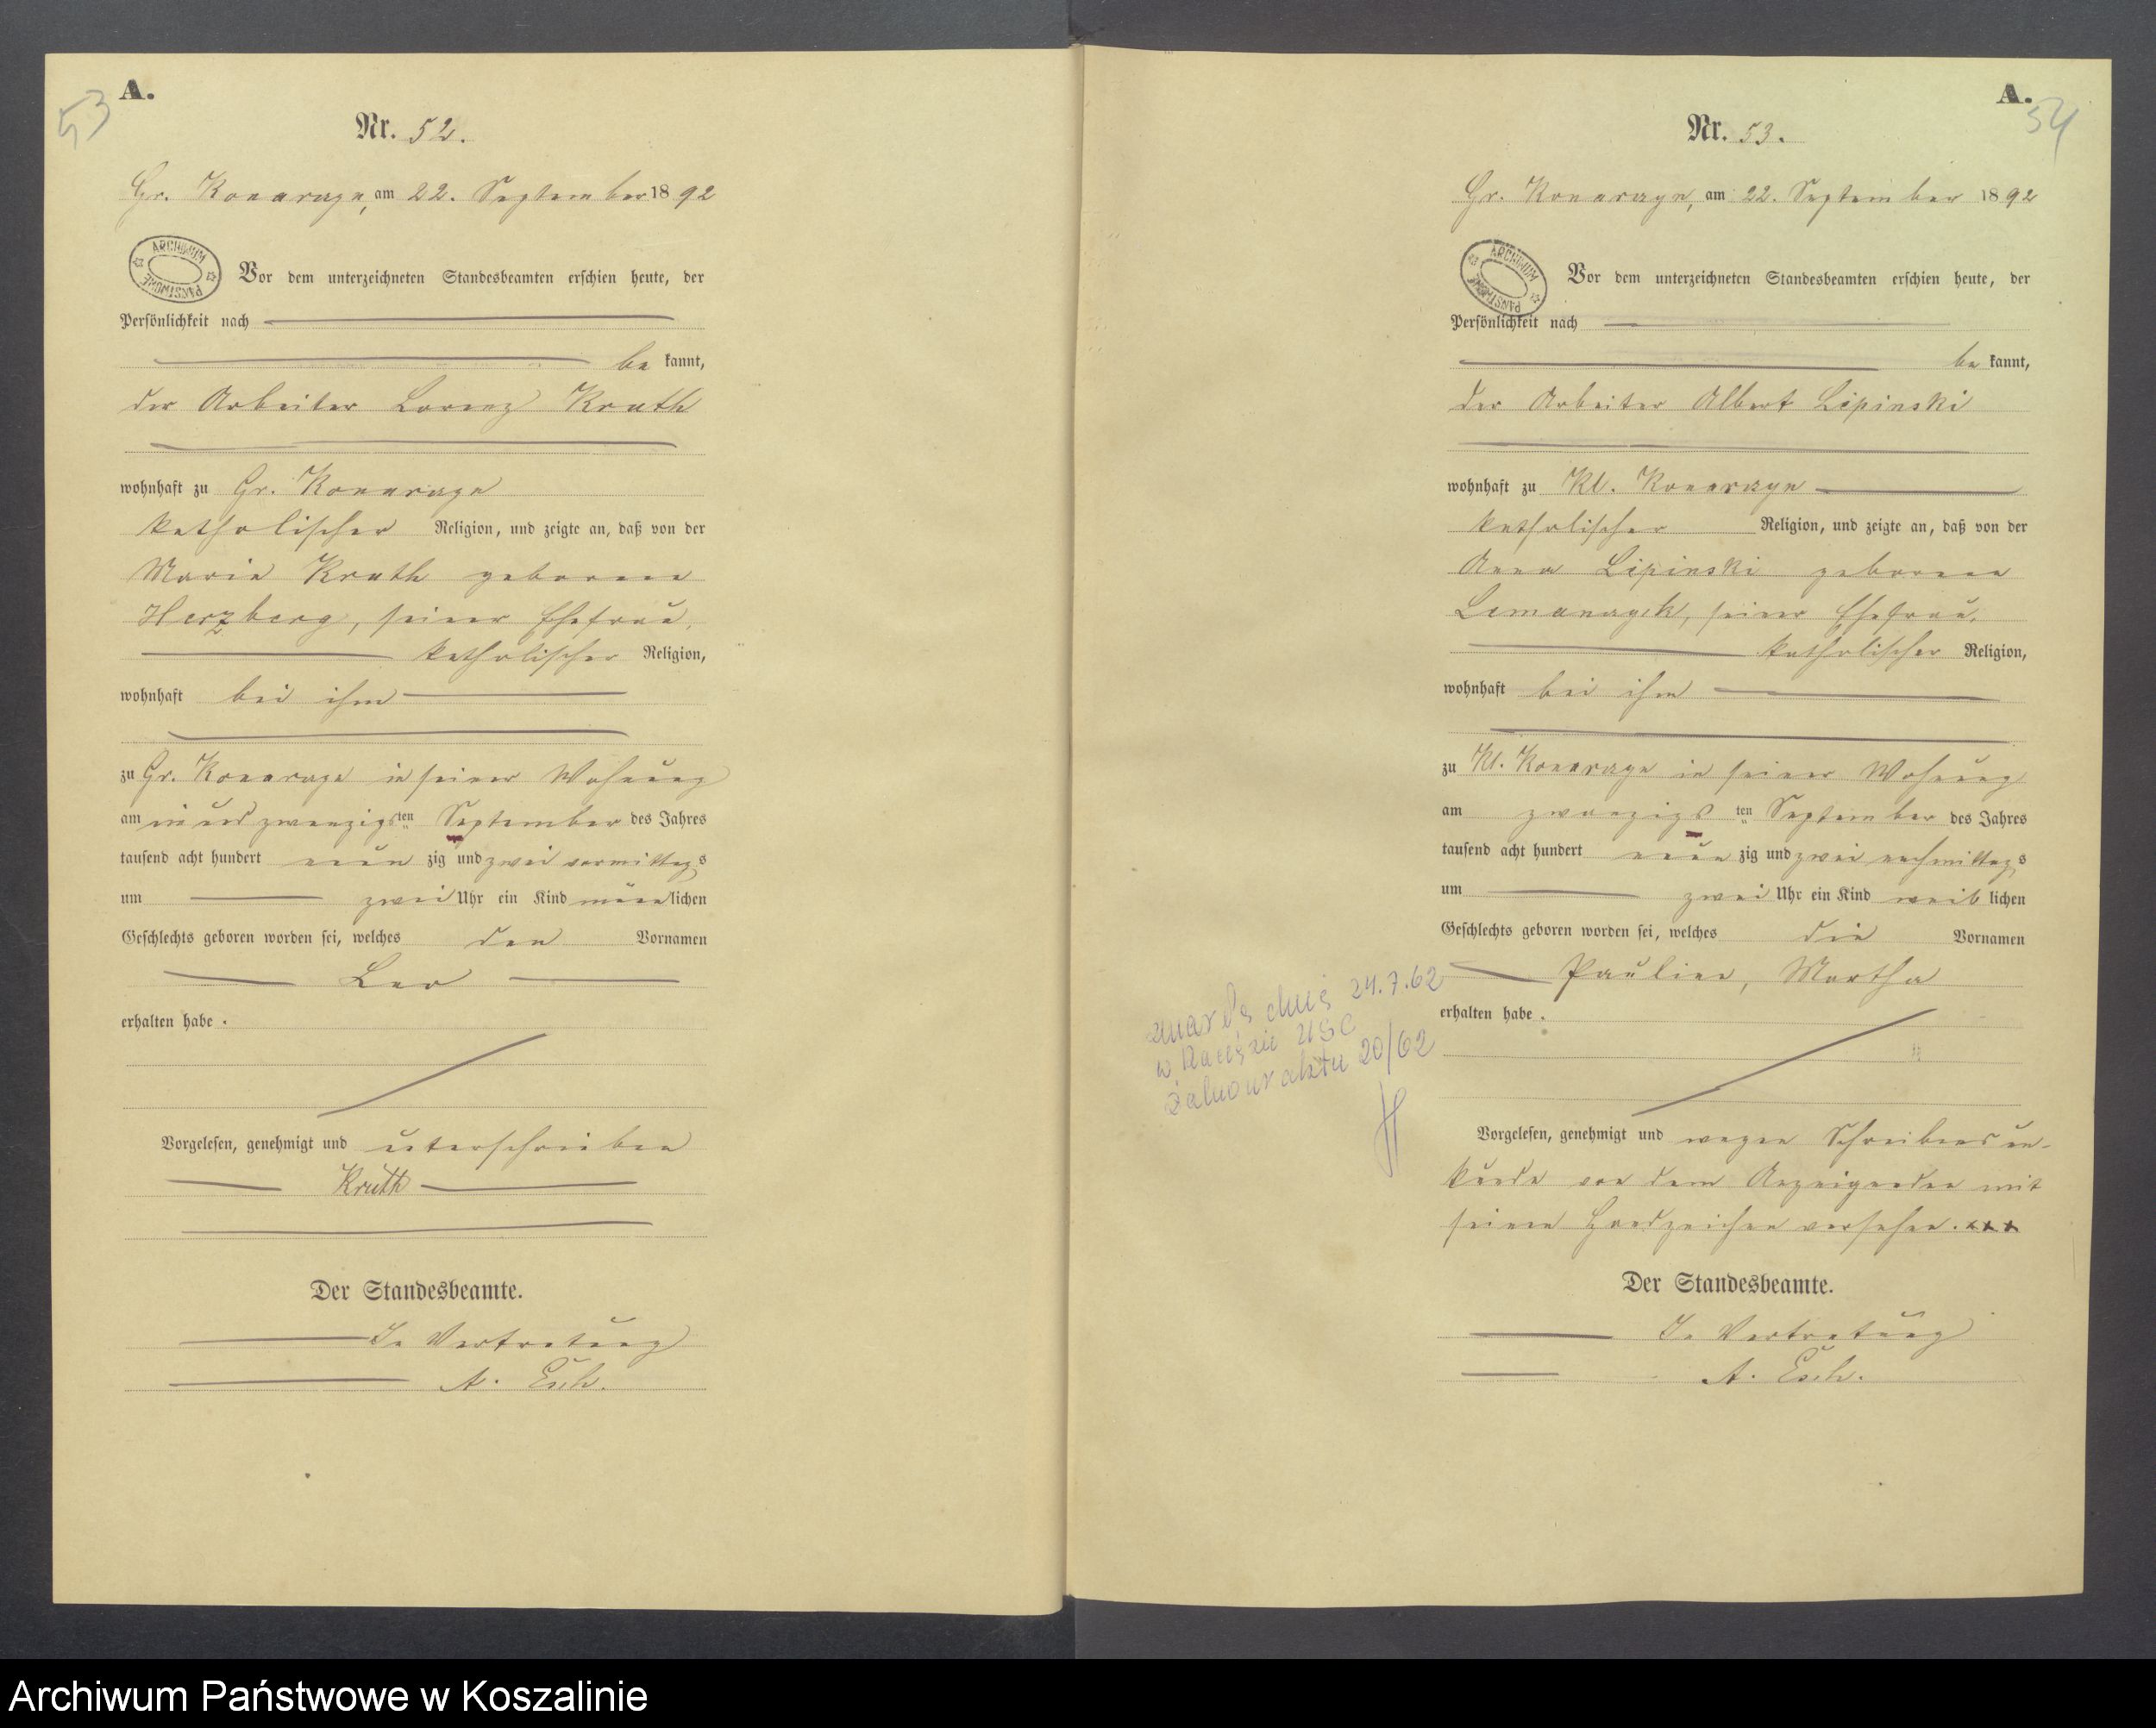 53
A.
Nr. 52.
Gr. Konarczyn, am 22. September 1892
ARCHIWUM PAŃSTWOWE
Vor dem unterzeichneten Standesbeamten erschien heute, der
Persönlichkeit nach
be kannt,
der Arbeiter Lorenz Kruth
wohnhaft zu Gr. Konarczyn
katholischer Religion, und zeigte an, daß von der
Maria Kruth geborene
Herzberg, seiner Ehefrau,
katholischer Religion,
wohnhaft bei ihm
zu Gr. Konarczyn in seiner Wohnung
am ein und zwanzigsten September des Jahres
tausend acht hundert neun zig und zwei vormittags
um zwei Uhr ein Kind männlichen
Geschlechts geboren worden sei, welches den Vornamen
Leo
erhalten habe.
Vorgelesen, genehmigt und unterschrieben
Kruth
Der Standesbeamte.
In Vertretung
A. Esch.
A.
54
Nr. 53.
Gr. Konarczyn, am 22. September 1892
ARCHIWUM PAŃSTWOWE
Vor dem unterzeichneten Standesbeamten erschien heute, der
Persönlichkeit nach
be kannt,
der Arbeiter Albert Lipinski
wohnhaft zu Kl. Konarczyn
katholischer Religion, und zeigte an, daß von der
Anna Lipinski geborene
Lemanczyk, seiner Ehefrau,
katholischer Religion,
wohnhaft bei ihm
zu Kl. Konarczyn in seiner Wohnung
am zwanzigsten September des Jahres
tausend acht hundert neun zig und zwei nachmittags
um zwei Uhr ein Kind weiblichen
Geschlechts geboren worden sei, welches die Vornamen
Pauline, Martha
erhalten habe.
zmarła dnia 24.7.62
w USC
aktu 20/62
Vorgelesen, genehmigt und wegen Schreibensun-
kunde von dem Anzeigenden mit
seinen Handzeichen versehen. xxx
Der Standesbeamte.
In Vertretung
A. Esch.
Archiwum Państwowe w Koszalinie